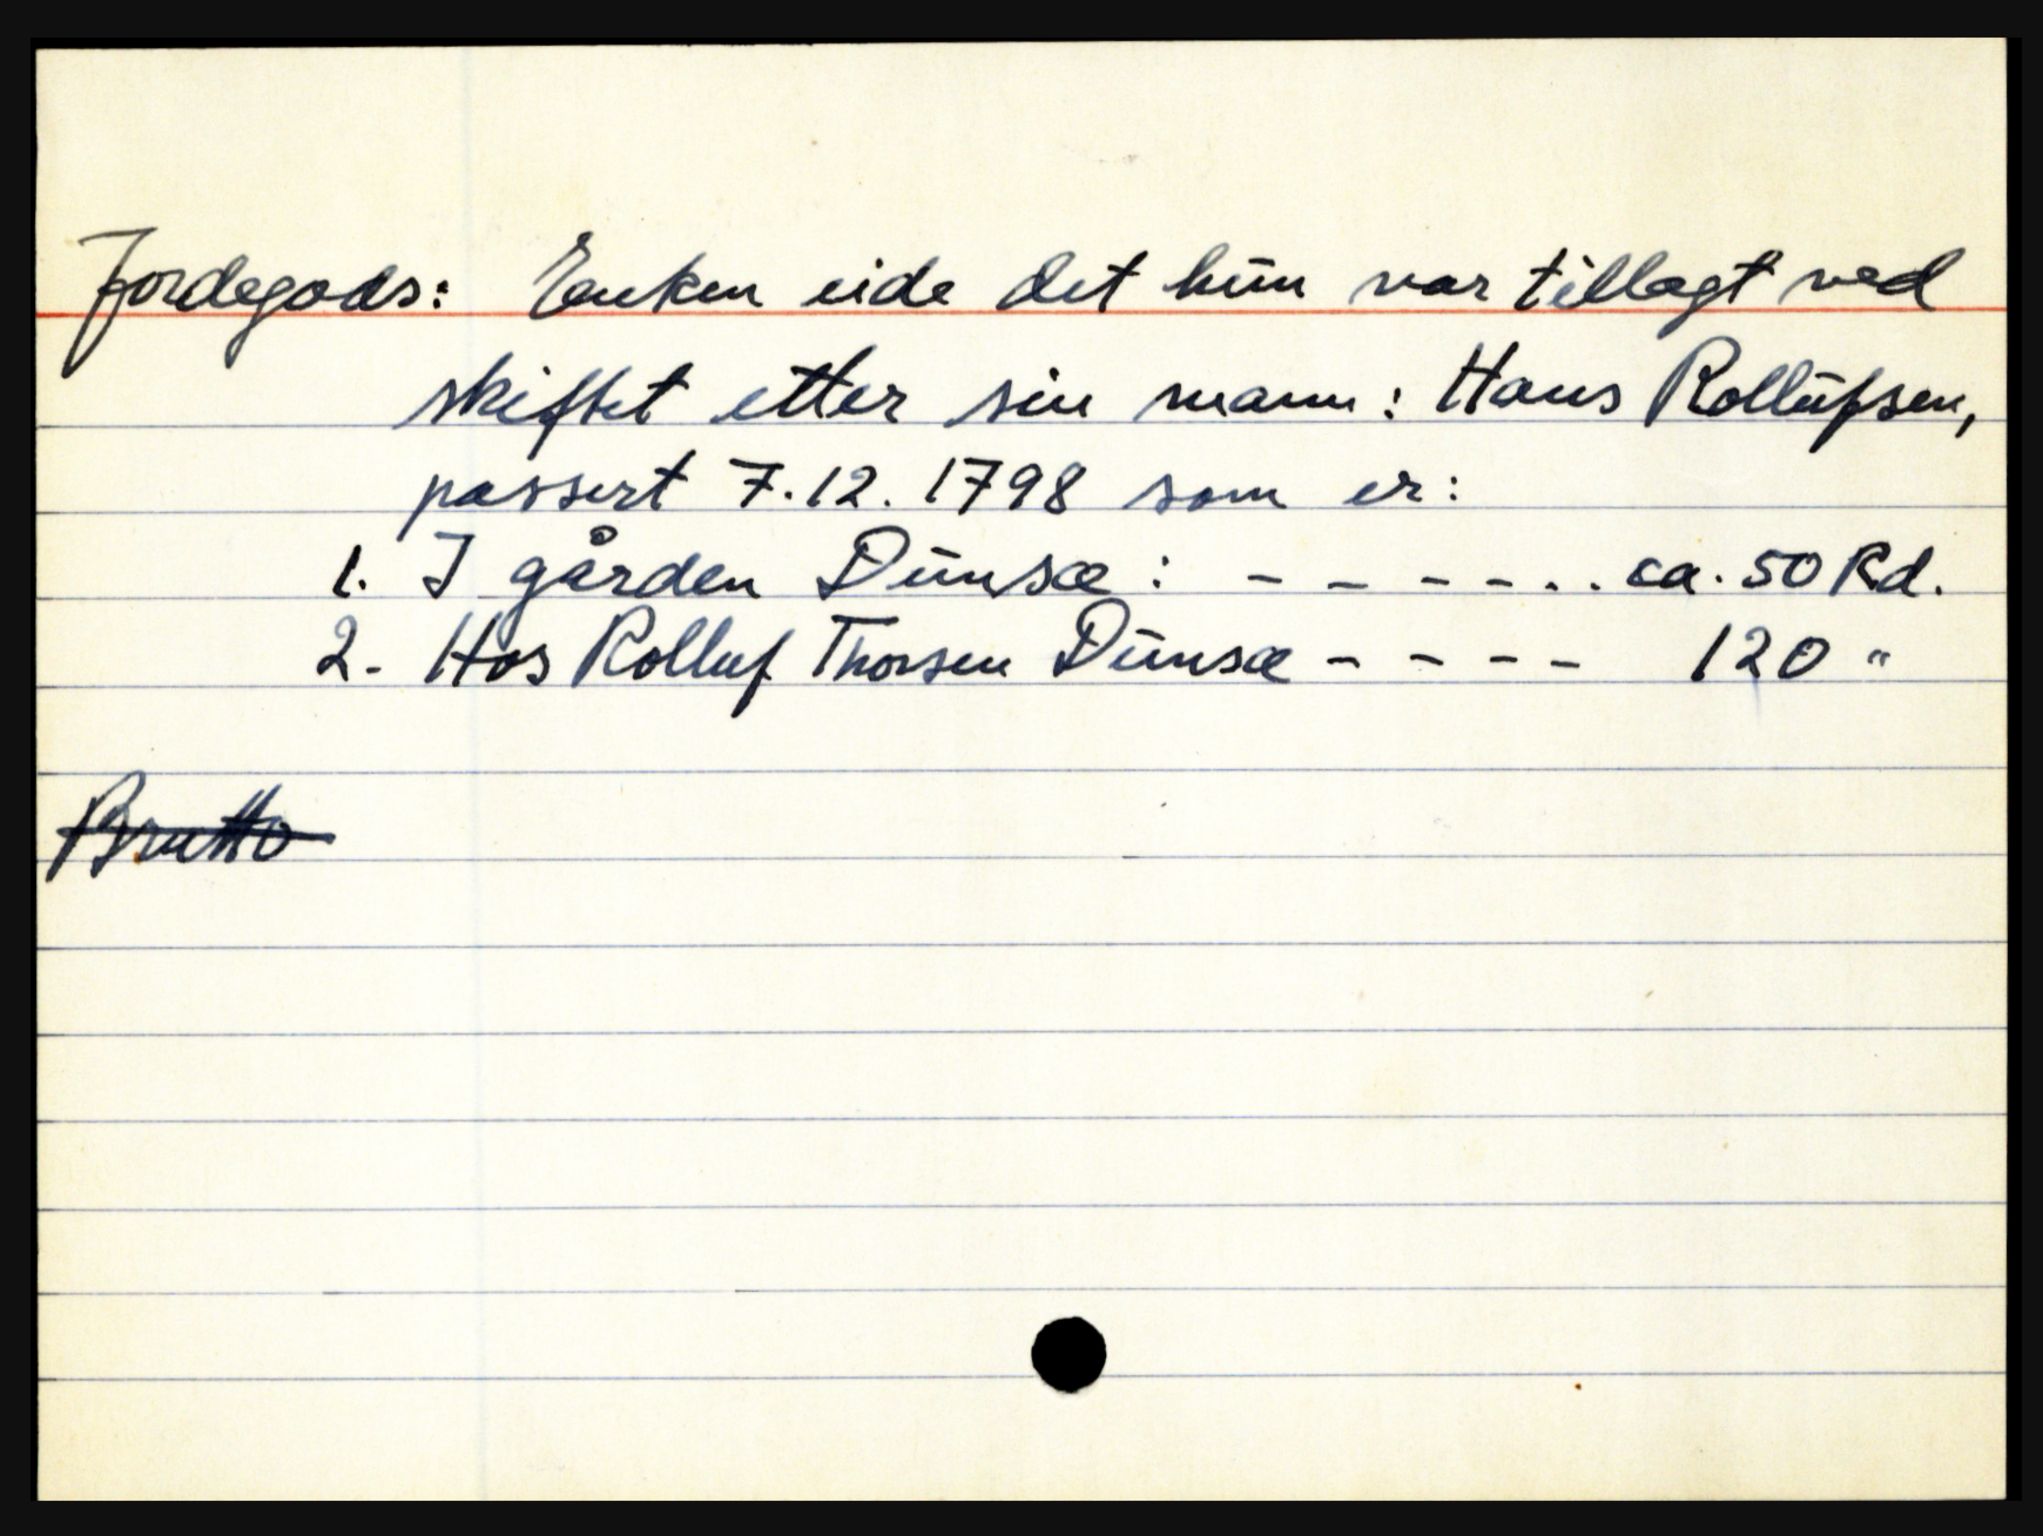 Jordegods: Enken eide det hūn var tillagt ved
skiftet etter sin mann: Hans Rollūfsen,
passert 7.12.1798 som er:
1. I gården Dūnsæ: - - - - . . ca. 50 Rd.
2. Hos Rolluf Thorsen Dūnsæ - - - - 120 "
Brutto